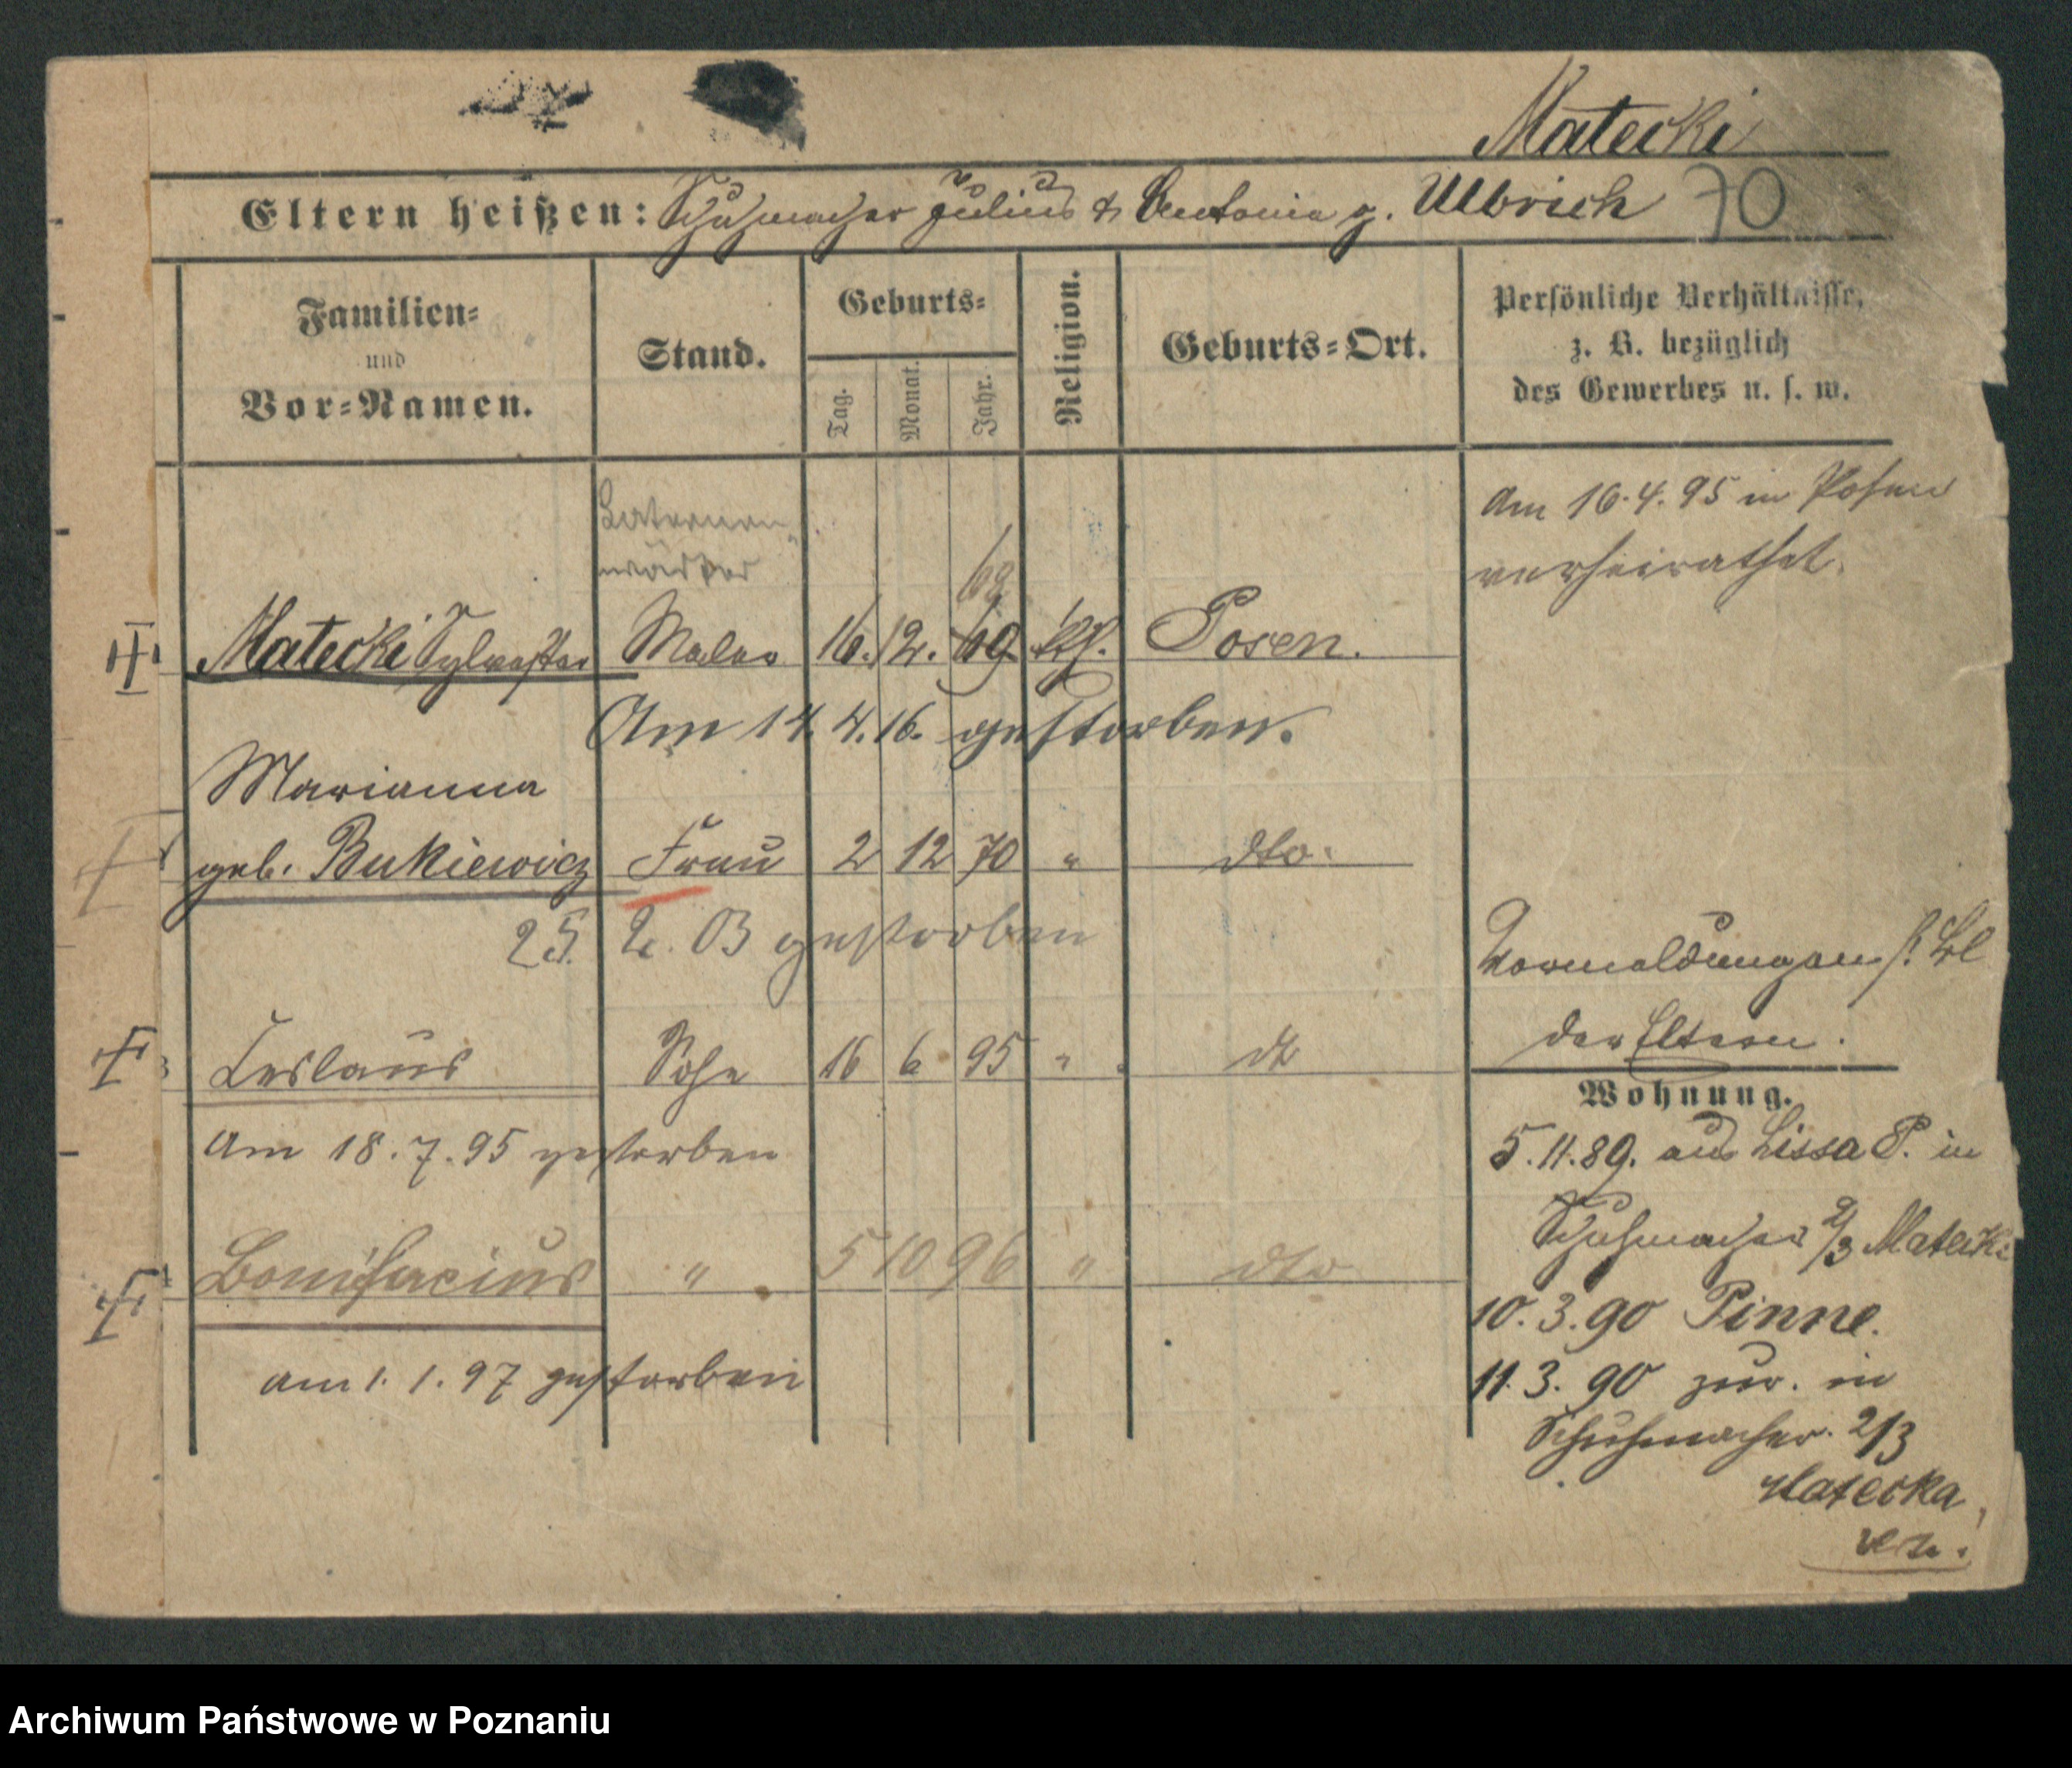 Matecki
Eltern heißen: Schuhmacher Julius & Antonia g. Ulbrich 70
Familien=
und
Vor=Namen.
Stand.
Geburts=
Tag. Monat. Jahr.
Religion.
Geburts=Ort.
Persönliche Verhältnisse,
z. B. bezüglich
des Gewerbes u. s. w.
Laternen
wärter
Am 16.4.95 in Posen
verheirathet.
68
Matecki Sylvester Maler 16. 12. 69 kth. Posen.
Am 14. 4. 16. gestorben.
Marianna
geb. Bukiewicz Frau 2 12 70 " dto.
25. 2. 03 gestorben
Vormeldungen s. Bl
der Eltern.
Ceslaus Sohn 16 6 95 " dto
Am 18.7.95 gestorben
Bonifacius " 5 10 96 " dto
am 1.1.97 gestorben
Wohnung.
5.11.89. aus Lissa P. in
Schuhmacher 2/3 Matecki
10.3.90 Pinne.
11.3.90 zur. in
Schuhmacher. 2/3
Matecka
Archiwum Państwowe w Poznaniu